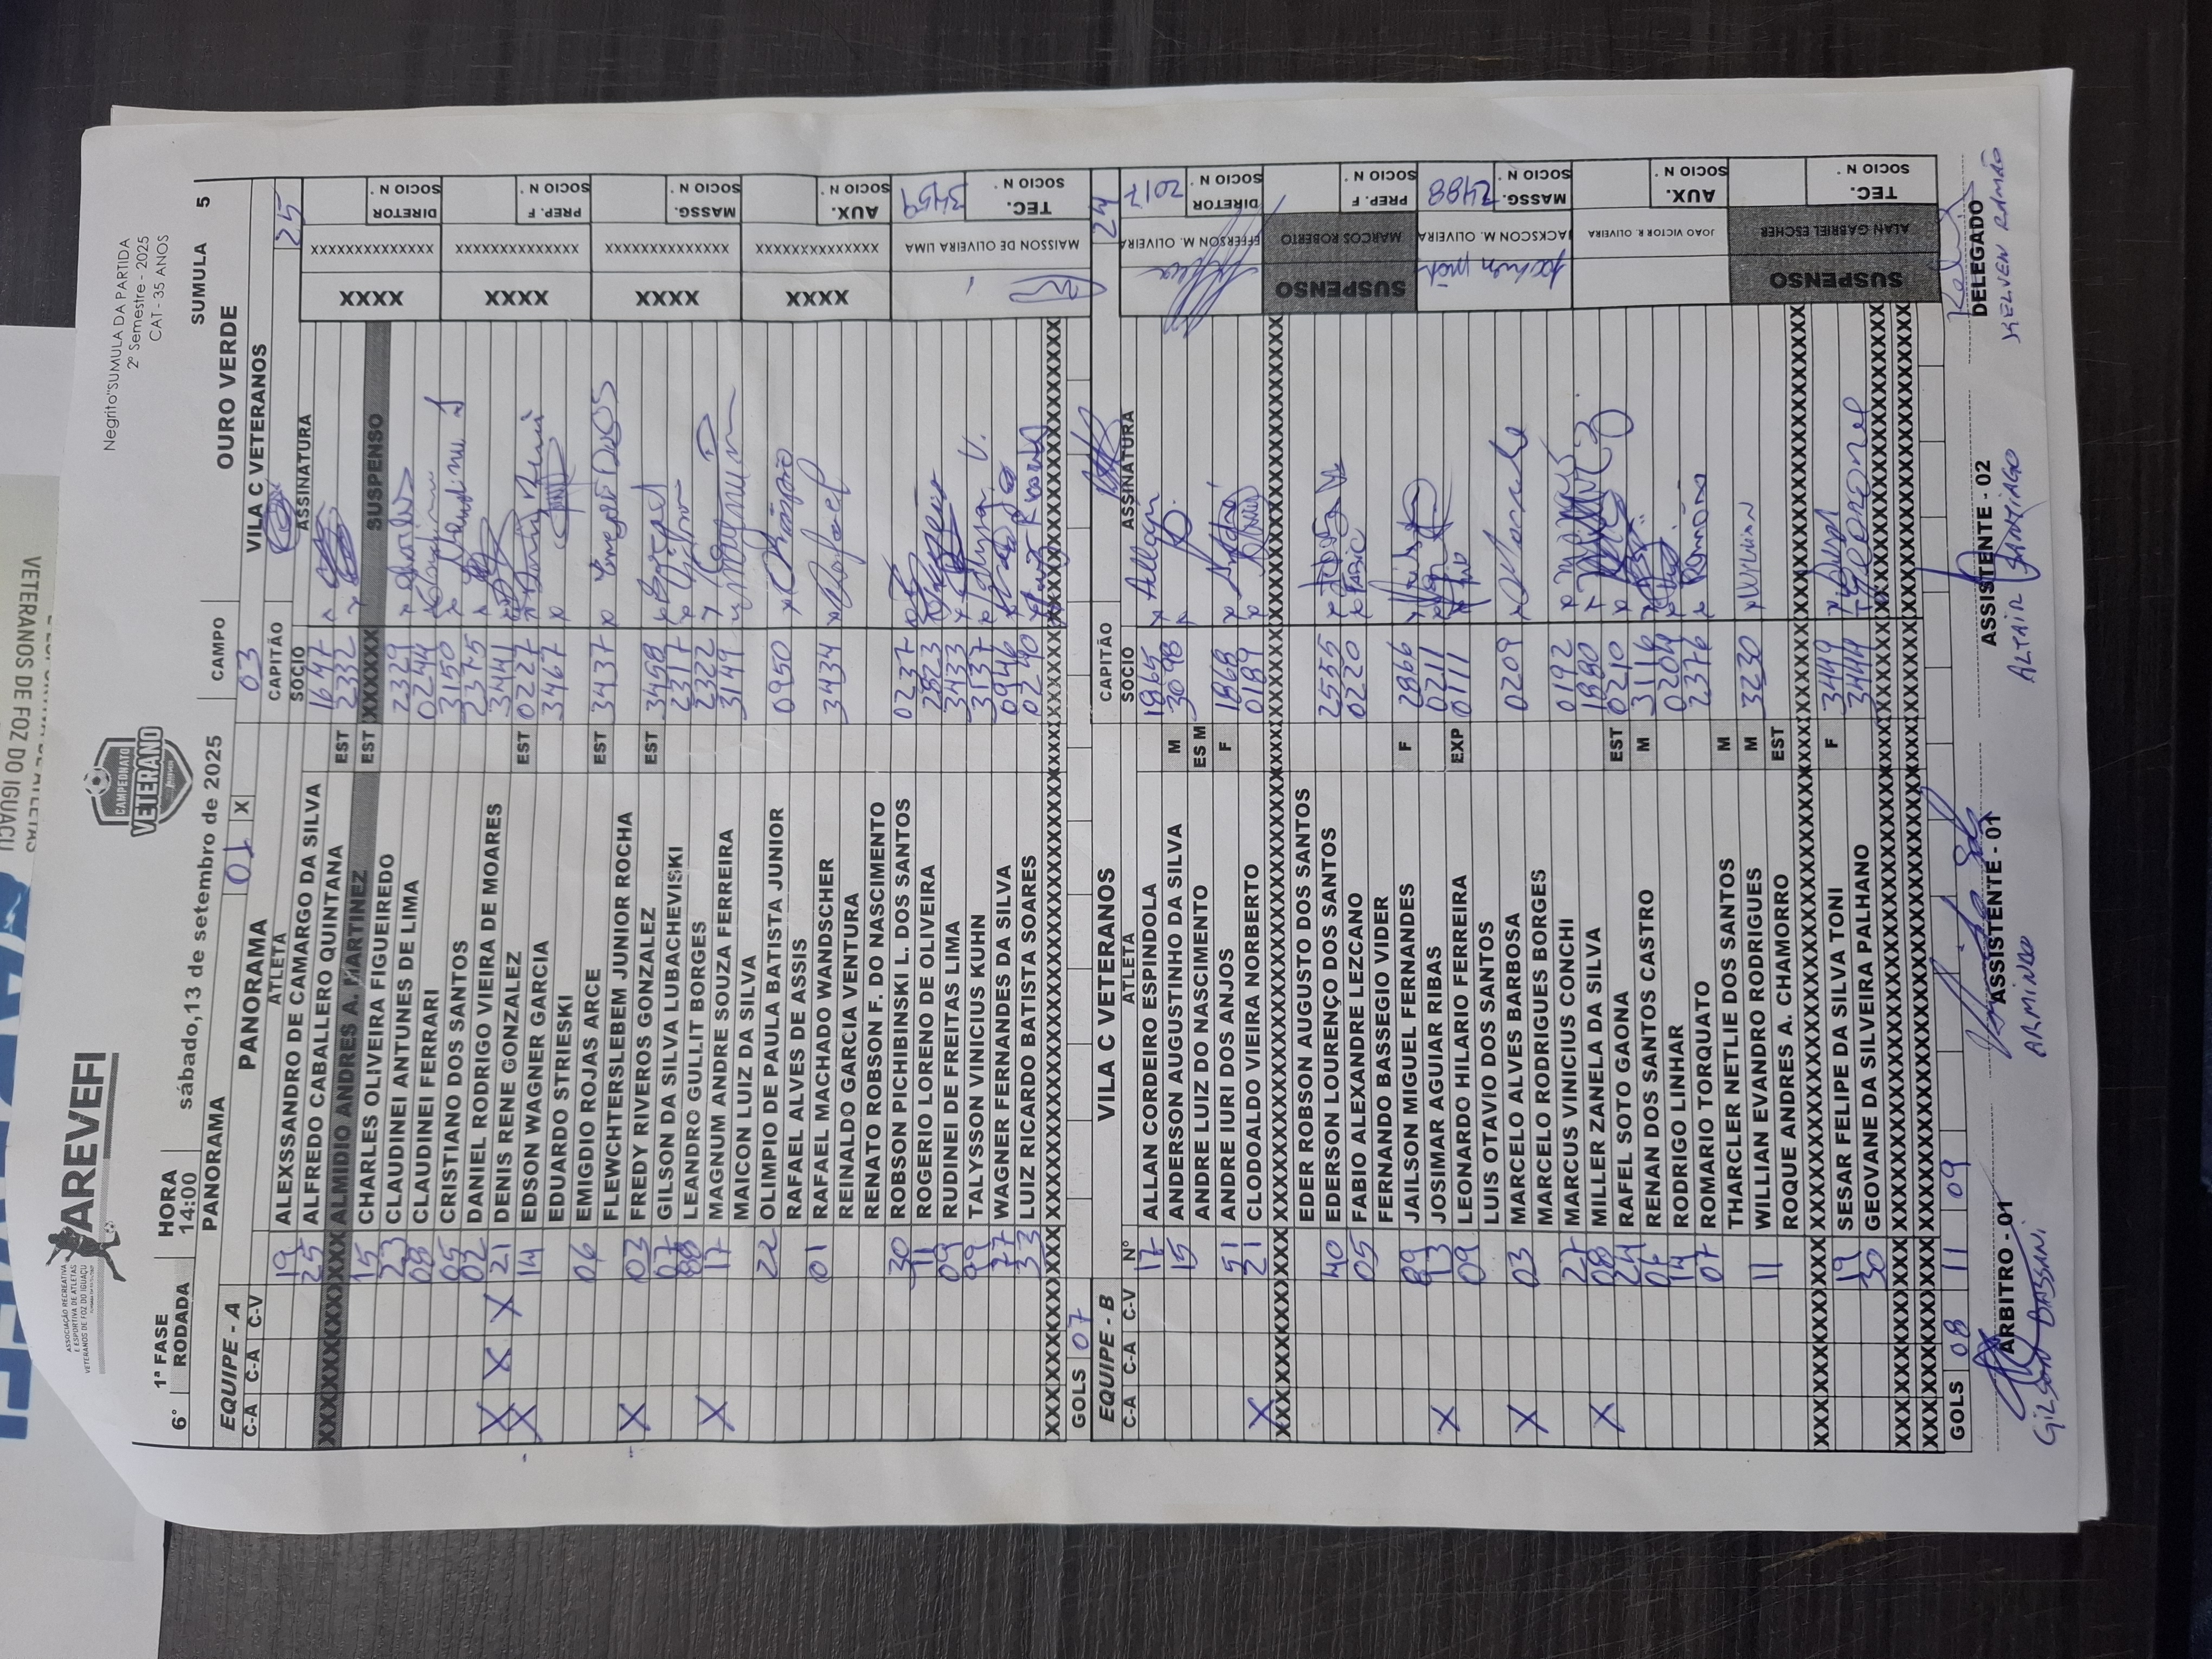 AREVEFI
ASSOCIAÇÃO RECREATIVA
E ESPORTIVA DE ATLETAS
VETERANOS DE FOZ DO IGUAÇU
CAMPEONATO
VETERANO
Negrito"SUMULA DA PARTIDA
2º Semestre - 2025
CAT - 35 ANOS
1ª FASE HORA CAMPO SUMULA 5
6° RODADA 14:00 sábado,13 de setembro de 2025 OURO VERDE
PANORAMA 01 X 03 VILA C VETERANOS
EQUIPE - A PANORAMA CAPITÃO 25
C-A C-A C-V ATLETA SOCIO ASSINATURA
19 ALEXSSANDRO DE CAMARGO DA SILVA 1647
25 ALFREDO CABALLERO QUINTANA EST 2332
XXXXXXXXXX ALMIDIO ANDRES A. MARTINEZ EST XXXXXX SUSPENSO
15 CHARLES OLIVEIRA FIGUEIREDO 2329
23 CLAUDINEI ANTUNES DE LIMA 0244
08 CLAUDINEI FERRARI 3150
05 CRISTIANO DOS SANTOS 2375
02 DANIEL RODRIGO VIEIRA DE MOARES 3441
X X X 21 DENIS RENE GONZALEZ EST 0227
X 14 EDSON WAGNER GARCIA 3467
EDUARDO STRIESKI
06 EMIGDIO ROJAS ARCE EST 3437
FLEWCHTERSLEBEM JUNIOR ROCHA
X 03 FREDY RIVEROS GONZALEZ EST 3458
07 GILSON DA SILVA LUBACHEVISKI 2317
88 LEANDRO GULLIT BORGES 2322
X 17 MAGNUM ANDRE SOUZA FERREIRA 3149
MAICON LUIZ DA SILVA
22 OLIMPIO DE PAULA BATISTA JUNIOR 0950
RAFAEL ALVES DE ASSIS
01 RAFAEL MACHADO WANDSCHER 3434 Rafael
REINALDO GARCIA VENTURA
RENATO ROBSON F. DO NASCIMENTO
30 ROBSON PICHIBINSKI L. DOS SANTOS 0237
11 ROGERIO LORENO DE OLIVEIRA 2823
09 RUDINEI DE FREITAS LIMA 3433
99 TALYSSON VINICIUS KUHN 3137
77 WAGNER FERNANDES DA SILVA 0946
33 LUIZ RICARDO BATISTA SOARES 0240
GOLS 07
XXXX XXXXXXXXXXXXXX DIRETOR SOCIO N °
XXXX XXXXXXXXXXXXXX PREP. F SOCIO N °
XXXX XXXXXXXXXXXXXX MASSG. SOCIO N °
XXXX XXXXXXXXXXXXXX AUX. SOCIO N °
MAISSON DE OLIVEIRA LIMA TEC. SOCIO N ° 3459
EQUIPE - B VILA C VETERANOS CAPITÃO 24
C-A C-A C-V Nº ATLETA SOCIO ASSINATURA
17 ALLAN CORDEIRO ESPINDOLA 1965 Allan
15 ANDERSON AUGUSTINHO DA SILVA M 3098
ANDRE LUIZ DO NASCIMENTO ES M
51 ANDRE IURI DOS ANJOS F 1968
X 21 CLODOALDO VIEIRA NORBERTO 0189
EDER ROBSON AUGUSTO DOS SANTOS
40 EDERSON LOURENÇO DOS SANTOS 2555
05 FABIO ALEXANDRE LEZCANO 0220 FABIO
FERNANDO BASSEGIO VIDER
89 JAILSON MIGUEL FERNANDES F 2866
X 13 JOSIMAR AGUIAR RIBAS 0211
09 LEONARDO HILARIO FERREIRA EXP 0711
LUIS OTAVIO DOS SANTOS
X 03 MARCELO ALVES BARBOSA 0209 Marcelo
MARCELO RODRIGUES BORGES
27 MARCUS VINICIUS CONCHI 0192
X 08 MILLER ZANELA DA SILVA 1880
24 RAFEL SOTO GAONA EST 0210
07 RENAN DOS SANTOS CASTRO M 3116
14 RODRIGO LINHAR 0204
07 ROMARIO TORQUATO 2376
THARCLER NETLIE DOS SANTOS M
11 WILLIAN EVANDRO RODRIGUES M 3230 WILLIAN
ROQUE ANDRES A. CHAMORRO EST
19 SESAR FELIPE DA SILVA TONI F 3449
30 GEOVANE DA SILVEIRA PALHANO 3444
GOLS 08 11 09
EFFERSON M. OLIVEIRA DIRETOR SOCIO N ° 2017
SUSPENSO MARCOS ROBERTO PREP. F SOCIO N °
JACKSCON M. OLIVEIRA MASSG. SOCIO N ° 2488
JOAO VICTOR R. OLIVEIRA AUX. SOCIO N °
SUSPENSO ALAN GABRIEL ESCHER TEC. SOCIO N °
ARBITRO - 01 ASSISTENTE - 01 ASSISTENTE - 02 DELEGADO
GILSON BASSANI. ARMINDO ALTAIR SANTIAGO KELVEN RAMÃO
VETERANOS DE FOZ DO IGUAÇU